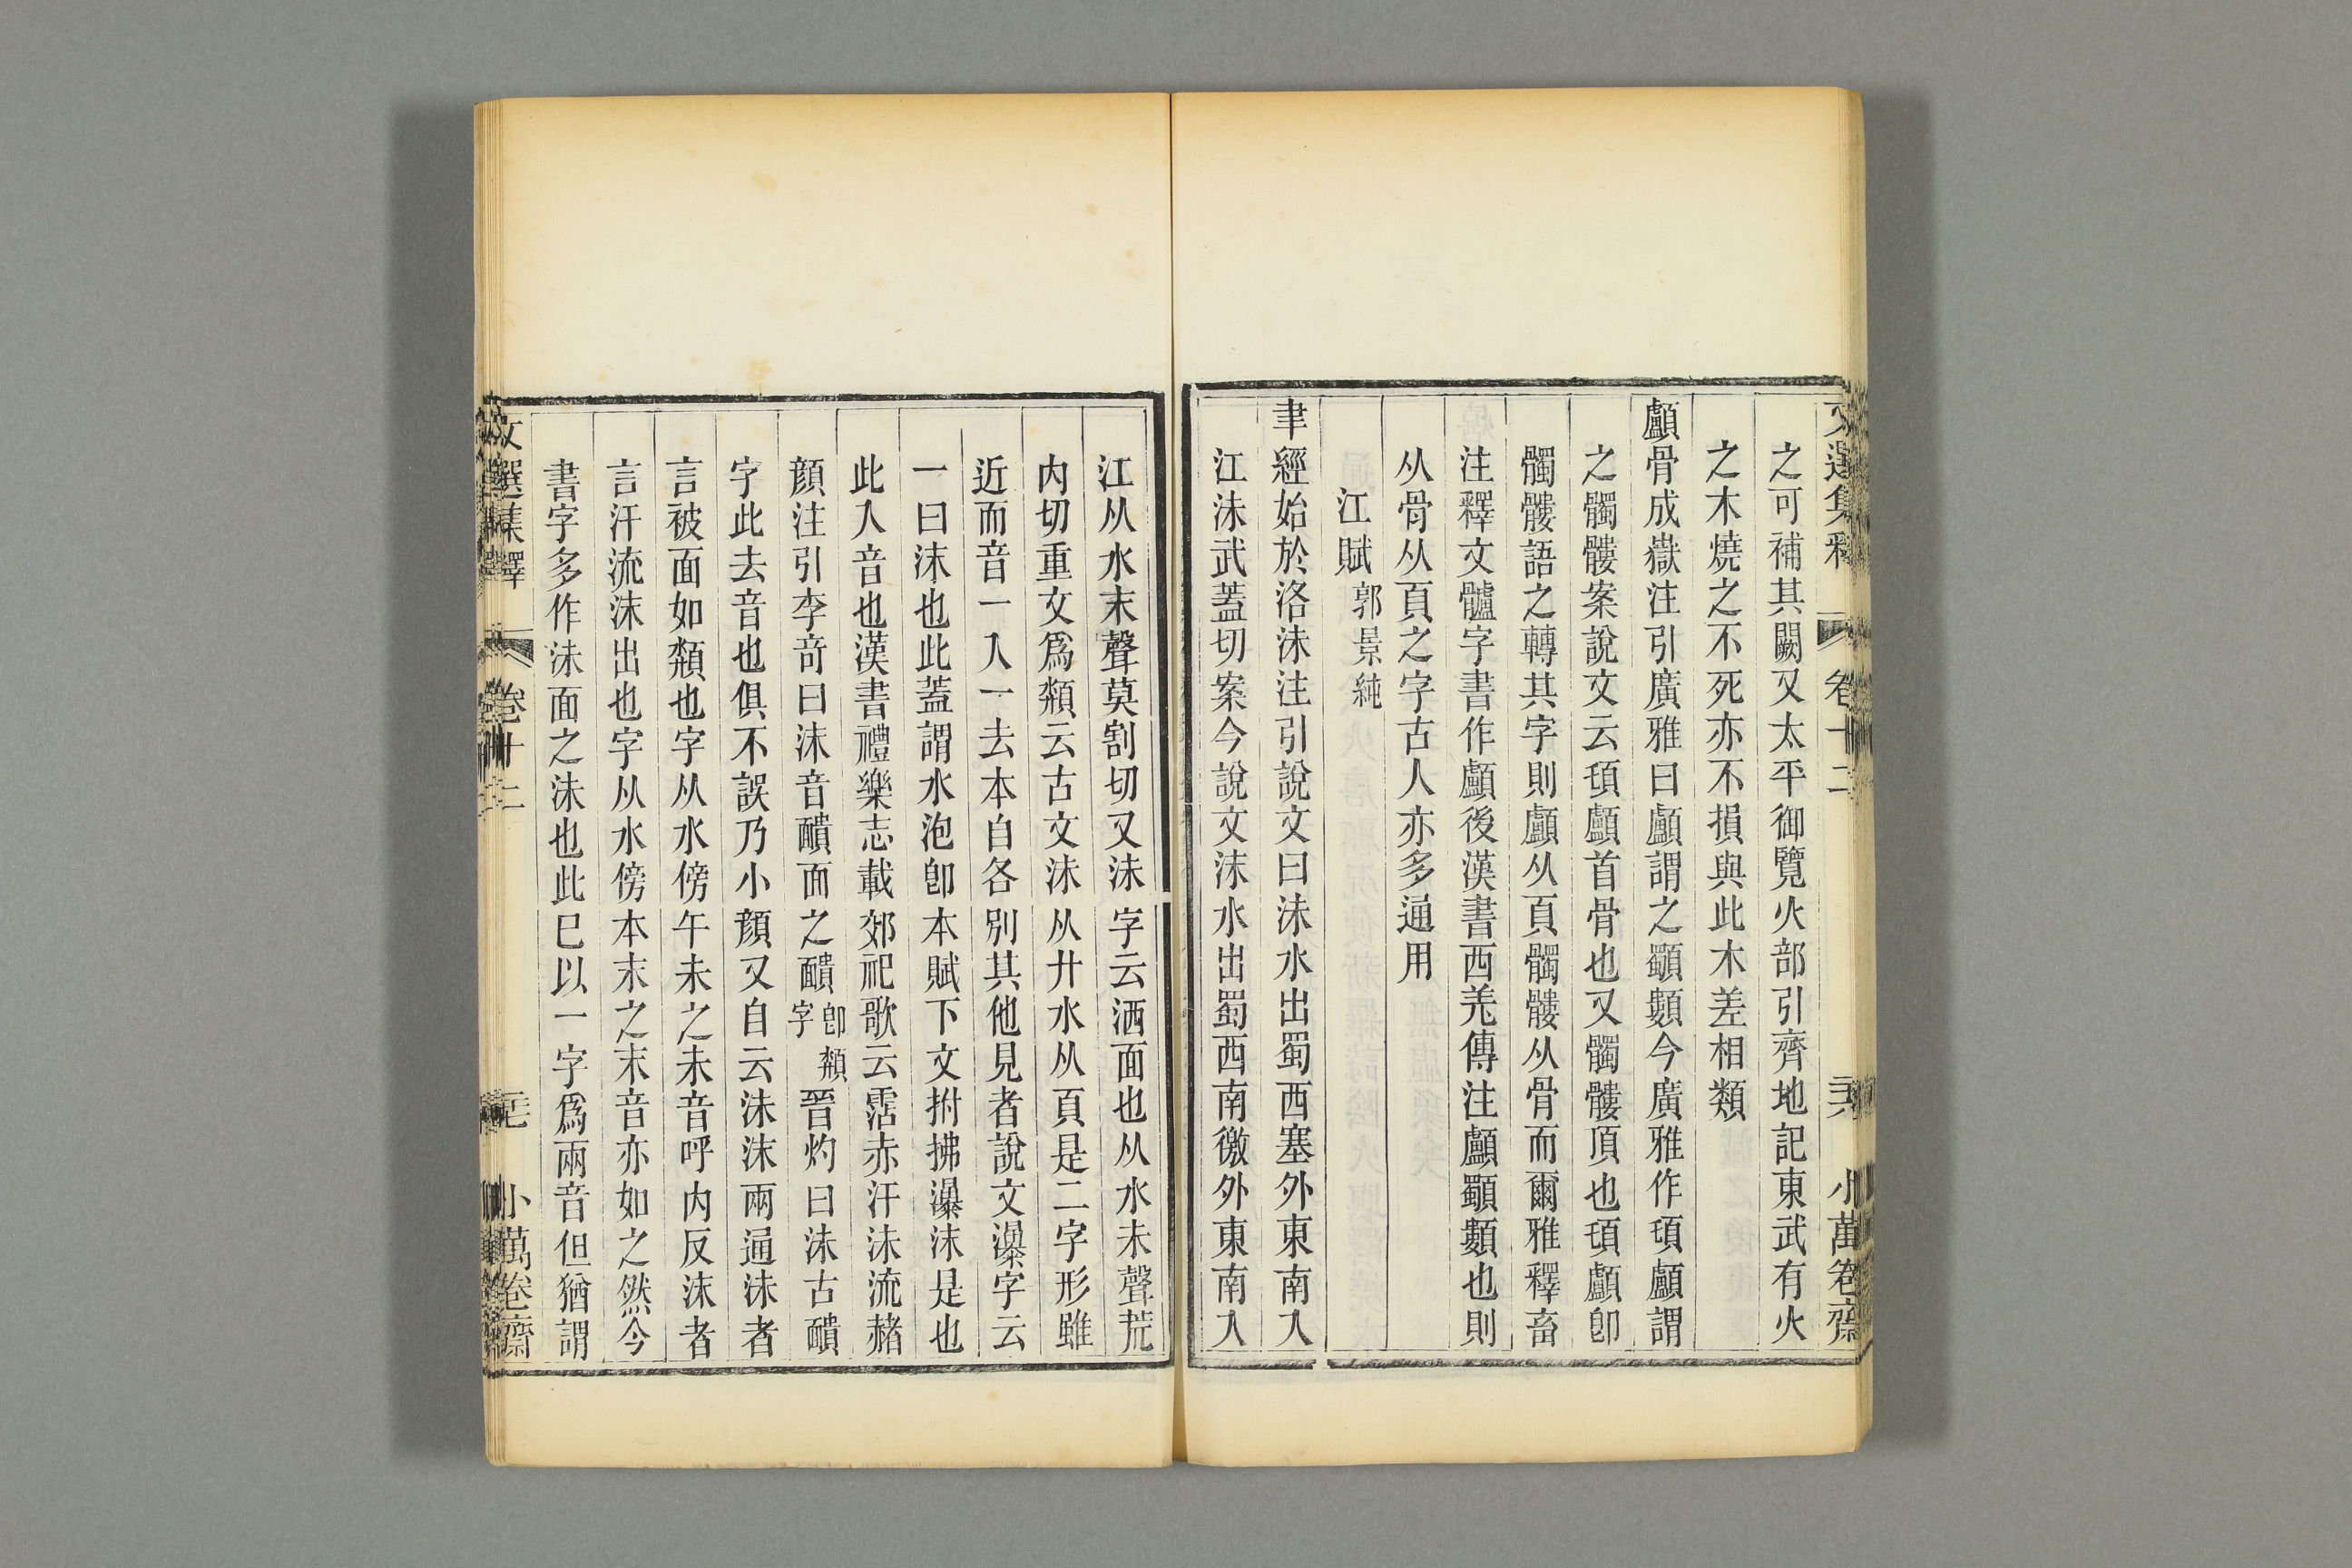 文選集釋 卷十二 六 小萬卷齋
之可補其闕又太平御覽火部引齊地記東武有火
之木燒之不死亦不損與此木差相類
顱骨成嶽注引廣雅曰顱謂之顳顬今廣雅作頊顱謂
之髑髏案說文云頊顱首骨也又髑髏頂也頊顱卽
髑髏語之轉其字則顱从頁髑髏从骨而爾雅釋畜
注釋文髗字書作顱後漢書西羌傳注顱顳顬也則
从骨从頁之字古人亦多通用
江賦郭景純
聿經始於洛沬注引說文曰沬水出蜀西塞外東南入
江沬武蓋切案今說文沬水出蜀西南徼外東南入
江从水末聲莫割切又沬字云洒面也从水未聲荒
內切重文爲頮云古文沬从廾水从頁是二字形雖
近而音一入一去本自各別其他見者說文瀑字云
一曰沫也此蓋謂水泡卽本賦下文拊拂瀑沫是也
此入音也漢書禮樂志載郊祀歌云霑赤汗沬流赭
顏注引李竒曰沬音靧面之靧卽頮字晉灼曰沬古靧
字此去音也俱不誤乃小顏又自云沬沫兩通沬者
言被面如頮也字从水傍午未之未音呼內反沫者
言汗流沫出也字从水傍本末之末音亦如之然今
書字多作沬面之沬也此巳以一字爲兩音但猶謂
文選集釋 卷十二 小萬卷齋